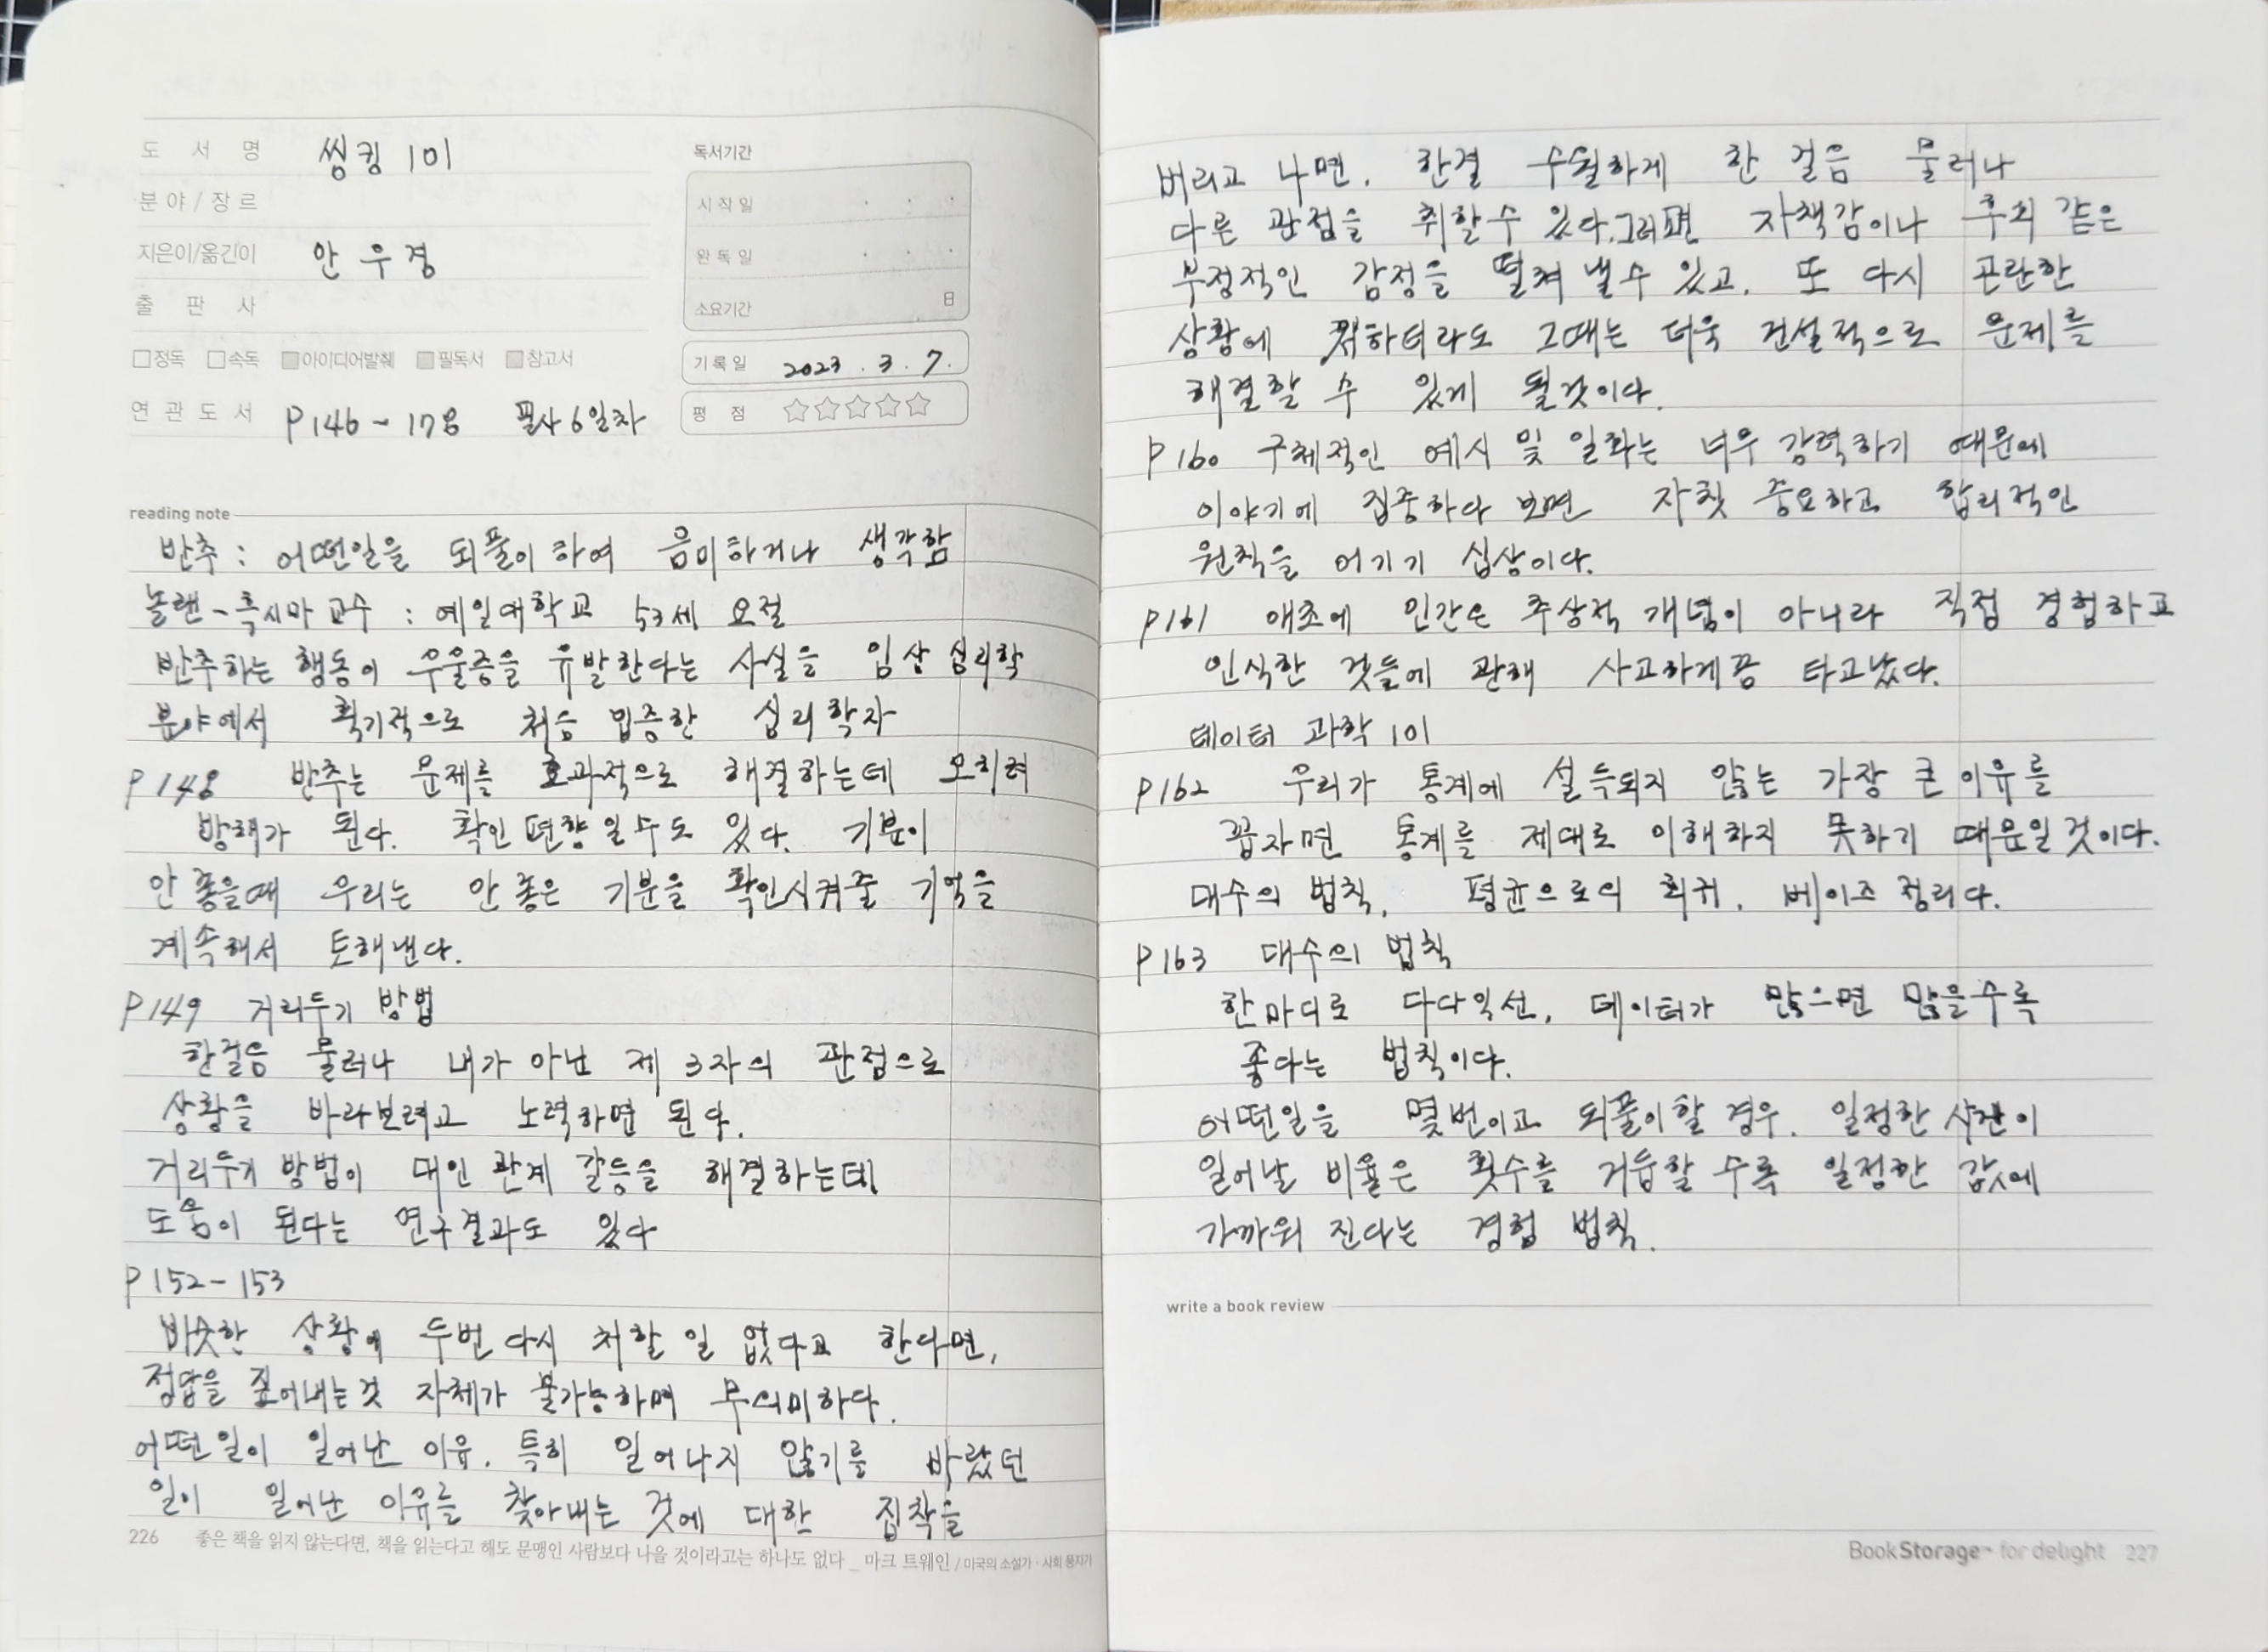 도 서 명 씽킹 101
분 야 / 장 르
지은이/옮긴이 안우경
출 판 사
□정독 □속독 □아이디어발췌 □필독서 □참고서
연 관 도 서 P146 ~ 178 필사 6일차
독서기간
시 작 일 . . .
완 독 일 . . .
소요기간 日
기 록 일 2023 . 3 . 7.
평 점 ☆☆☆☆☆
reading note
반추 : 어떤일을 되풀이 하여 음미하거나 생각함
놀랜 - 흑시마 교수 : 예일대학교 53세 요절
반추하는 행동이 우울증을 유발한다는 사실을 임상 심리학
분야에서 획기적으로 처음 입증한 심리학자
P 148 반추는 문제를 효과적으로 해결하는데 오히려
방해가 된다. 확인 편향일수도 있다. 기분이
안 좋을때 우리는 안 좋은 기분을 확인시켜줄 기억을
계속해서 토해낸다.
P149 거리두기 방법
한걸음 물러나 내가 아닌 제 3자의 관점으로
상황을 바라보려고 노력하면 된다.
거리두기 방법이 대인 관계 갈등을 해결하는데
도움이 된다는 연구결과도 있다
P 152 - 153
비슷한 상황에 두번 다시 처할 일 없다고 한다면,
정답을 짚어내는것 자체가 불가능하며 무의미하다.
어떤일이 일어난 이유. 특히 일어나지 않기를 바랐던
일이 일어난 이유를 찾아내는 것에 대한 집착을
226 좋은 책을 읽지 않는다면, 책을 읽는다고 해도 문맹인 사람보다 나을 것이라고는 하나도 없다 _ 마크 트웨인 / 미국의 소설가 · 사회 풍자가
버리고 나면. 한결 수월하게 한 걸음 물러나
다른 관점을 취할수 있다.그러면 자책감이나 후회 같은
부정적인 감정을 떨쳐 낼수 있고. 또 다시 곤란한
상황에 처하더라도 그때는 더욱 건설적으로 문제를
해결할 수 있게 될것이다.
P 160 구체적인 예시 및 일화는 너무 강력하기 때문에
이야기에 집중하다 보면 자칫 중요하고 합리적인
원칙을 어기기 십상이다.
P161 애초에 인간은 추상적 개념이 아니라 직접 경험하고
인식한 것들에 관해 사고하게끔 타고났다.
데이터 과학 101
P162 우리가 통계에 설득되지 않는 가장 큰 이유를
꼽자면 통계를 제대로 이해하지 못하기 때문일것이다.
대수의 법칙, 평균으로의 회귀, 베이즈 정리다.
P163 대수의 법칙
한마디로 다다익선, 데이터가 많으면 많을수록
좋다는 법칙이다.
어떤일을 몇번이고 되풀이할 경우. 일정한 사건이
일어날 비율은 횟수를 거듭할 수록 일정한 값에
가까워 진다는 경험 법칙.
write a book review
BookStorage™ for delight 227